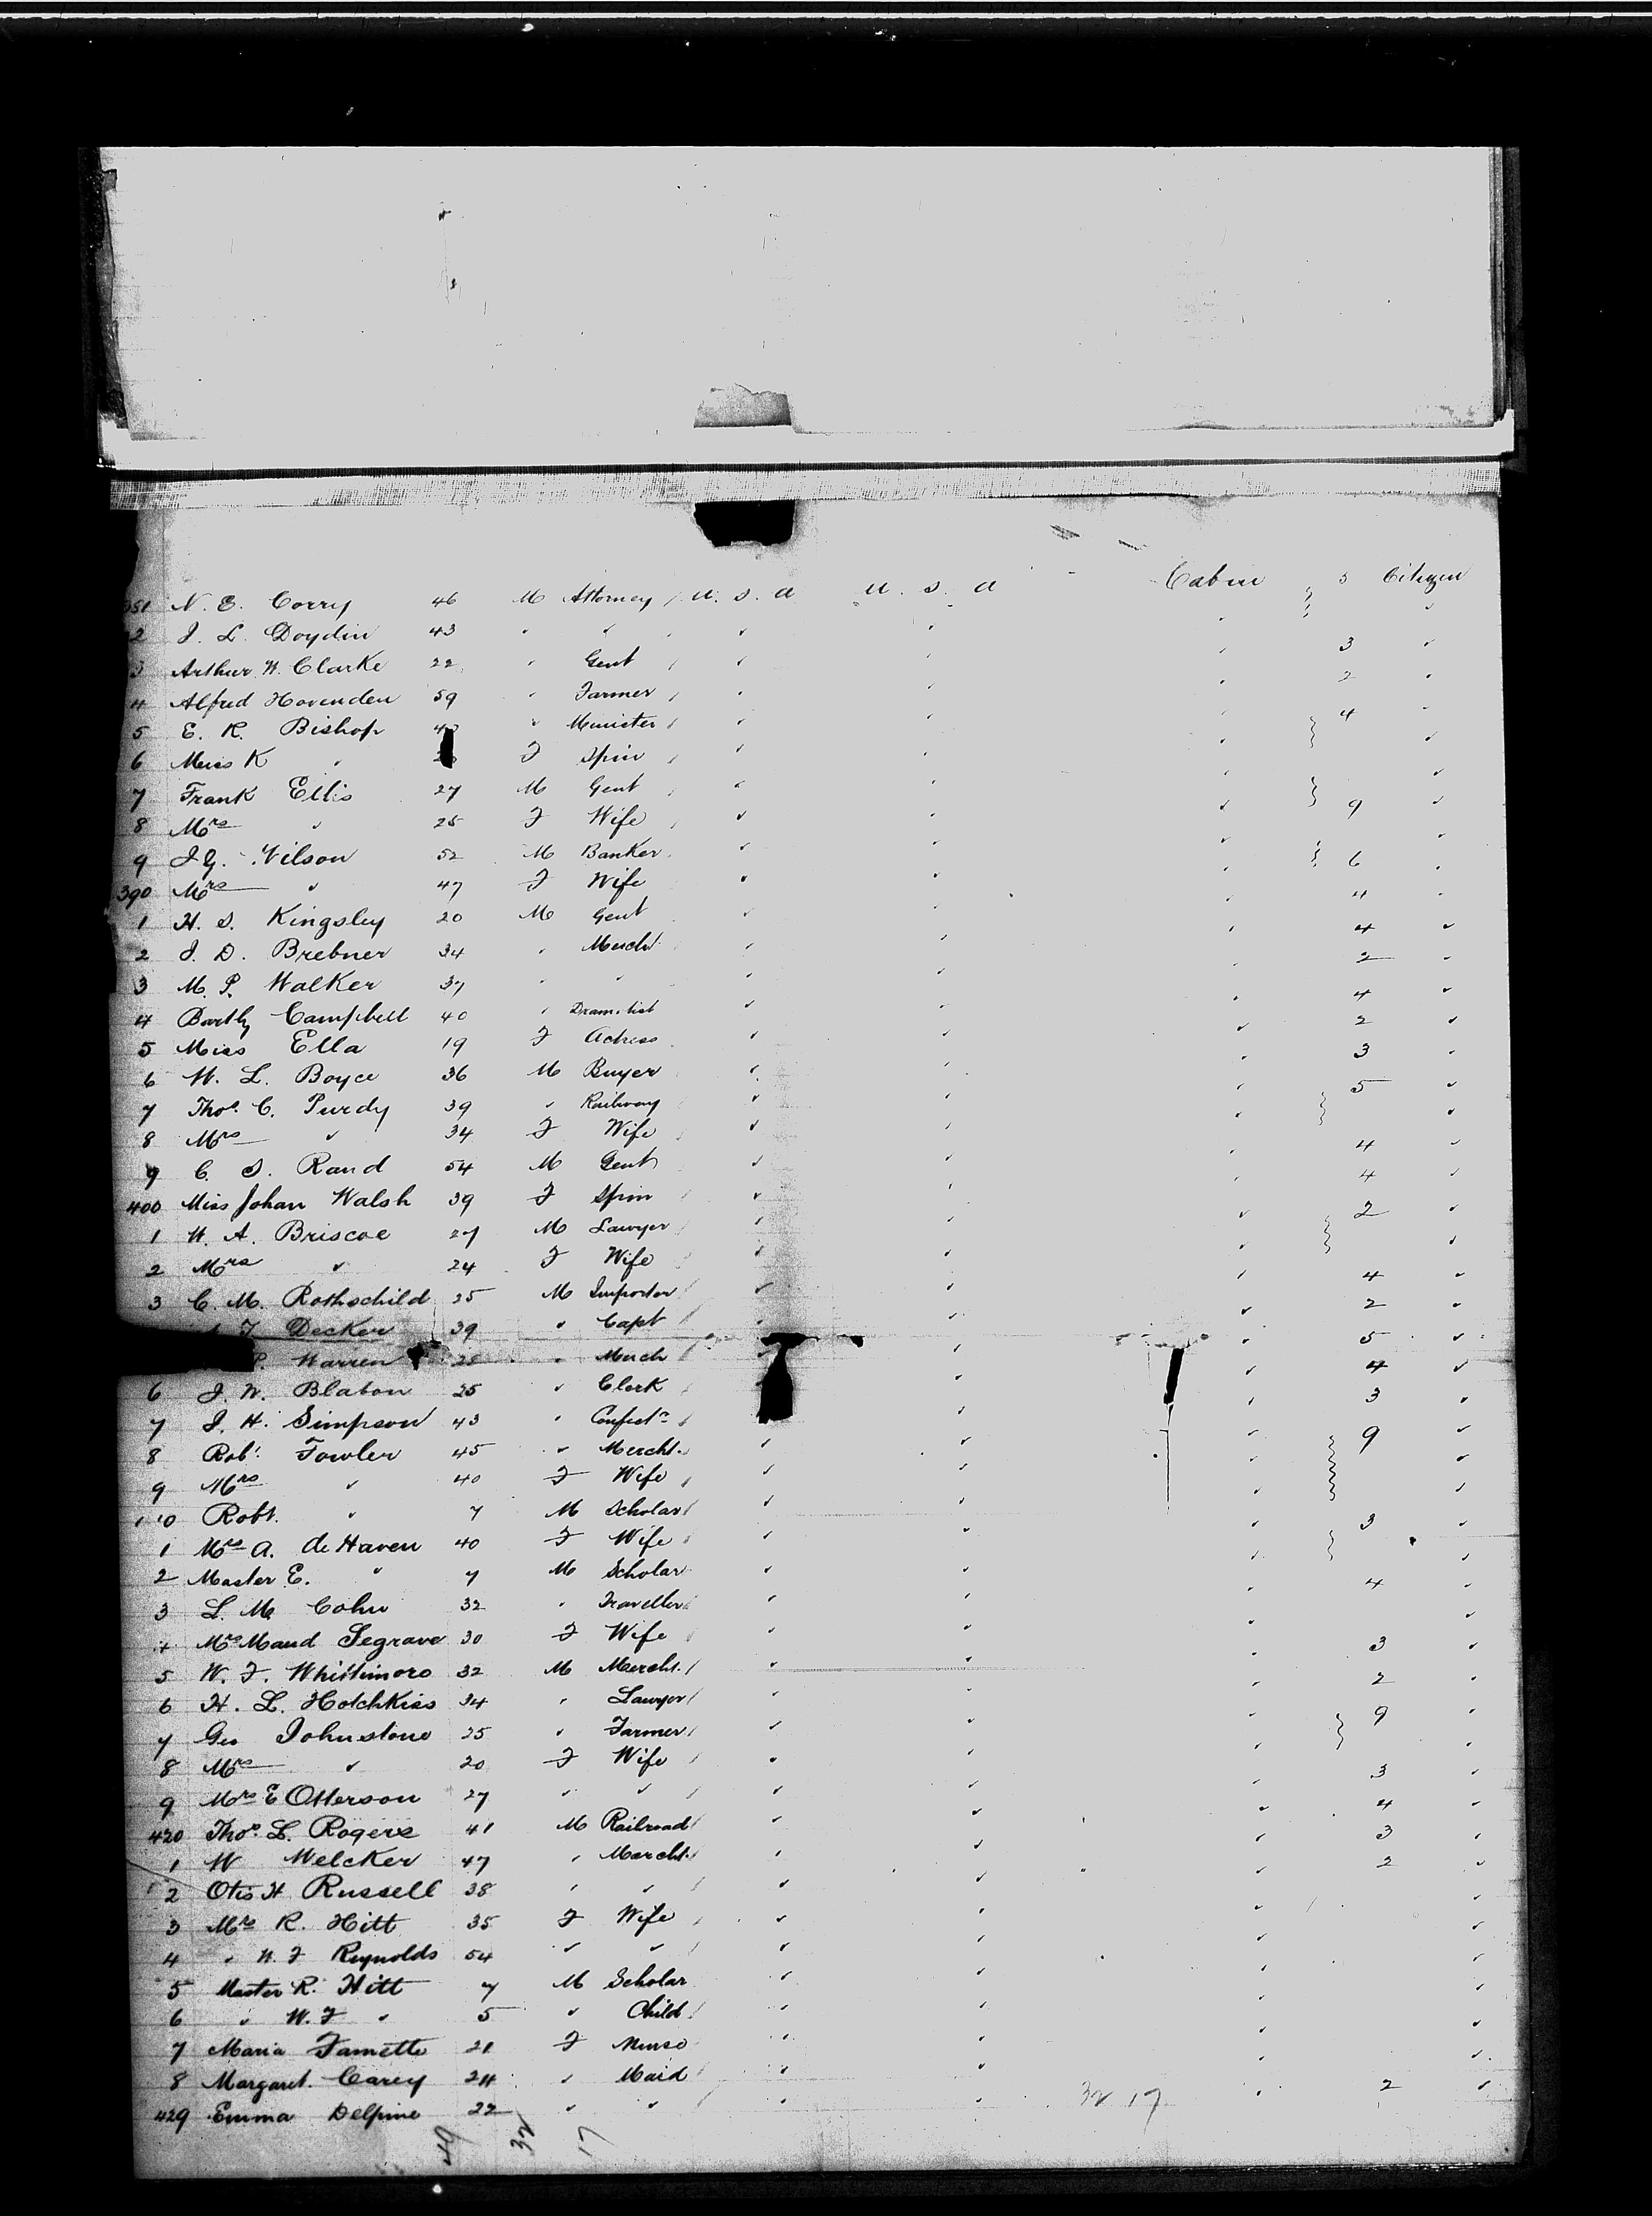 381 N. E. Corry 46 M Attorney / U. S. A U. S. A Cabin 3 Citizen
2 J. L. Doydin 43 " " / " " " "
3 Arthur W. Clarke 22 " Gent / " " " 3 "
4 Alfred Hovenden 59 " Farmer / " " " 2 "
5 E. R. Bishop " Minister / " " " 4 "
6 Miss K " F Spin / " " " "
7 Frank Ellis 27 M Gent / " " " "
8 Mrs " 25 F Wife / " " " 9 "
9 J. G. Wilson 52 M Banker " " " "
390 Mrs " 47 F Wife " " " 6 "
1 H. S. Kingsley 20 M Gent " " " 4 "
2 J. D. Brebner 34 " Merch " " " 4 "
3 M. P. Walker 37 " " " " " 2 "
4 Bartly Campbell 40 " Dramatist " " " 4 "
5 Miss Ella 19 F Actress " " " 2 "
6 W. L. Boyce 36 M Buyer " " " 3 "
7 Thos. C. Purdy 39 " Railway " " " 5 "
8 Mrs " 34 F Wife " " " "
9 C. S. Rand 54 M Gent " " " 4 "
400 Miss Johan Walsh 39 F Spin " " " 4 "
1 W. A. Briscoe 27 M Lawyer " " " 2 "
2 Mrs " 24 F Wife " " " "
3 C. M. Rothschild 25 M Importer " " " 4 "
F Decker 39 " Capt " " " 2 "
P. Warren 28 " Merch " " " 5 "
6 J. W. Blabon 25 " Clerk " " 4 "
7 J. H. Simpson 43 " Confectr " " 3 "
8 Robt. Fowler 45 " Mercht. " " " 9 "
9 Mrs " 40 F Wife / " " " "
10 Robt. " 7 M Scholar / " " " "
1 Mrs A. de Haven 40 F Wife " " " 3 "
2 Master E. " 7 M Scholar " " " "
3 L. M. Cohn 32 " Traveller " " " 4 "
4 Mrs Maud Segrave 30 F Wife " " " "
5 W. F. Whittimore 32 M Mercht. / " " " 3 "
6 H. L. Hotchkiss 34 " Lawyer / " " " 2 "
7 Geo Johnstone 25 " Farmer / " " " 9 "
8 Mrs " 20 F Wife / " " " "
9 Mrs E Otterson 27 " " / " " " 3 "
420 Thos. L. Rogers 41 M Railroad / " " " 4 "
1 W Welcker 47 " Mercht. " " " 3 "
2 Otis H Russell 38 " " / " " " 2 "
3 Mrs R. Hitt 35 F Wife / " " " "
4 " W. F Reynolds 54 " " / " " " "
5 Master R. Hitt 7 M Scholar " " " "
6 " W. F " 5 " Child / " " " "
7 Maria Famette 21 F Nurse " " " "
8 Margaret Carey 24 " Maid / " " " "
429 Emma Delpine 22 " " / " " 32 17 " 2 "
49 32 17